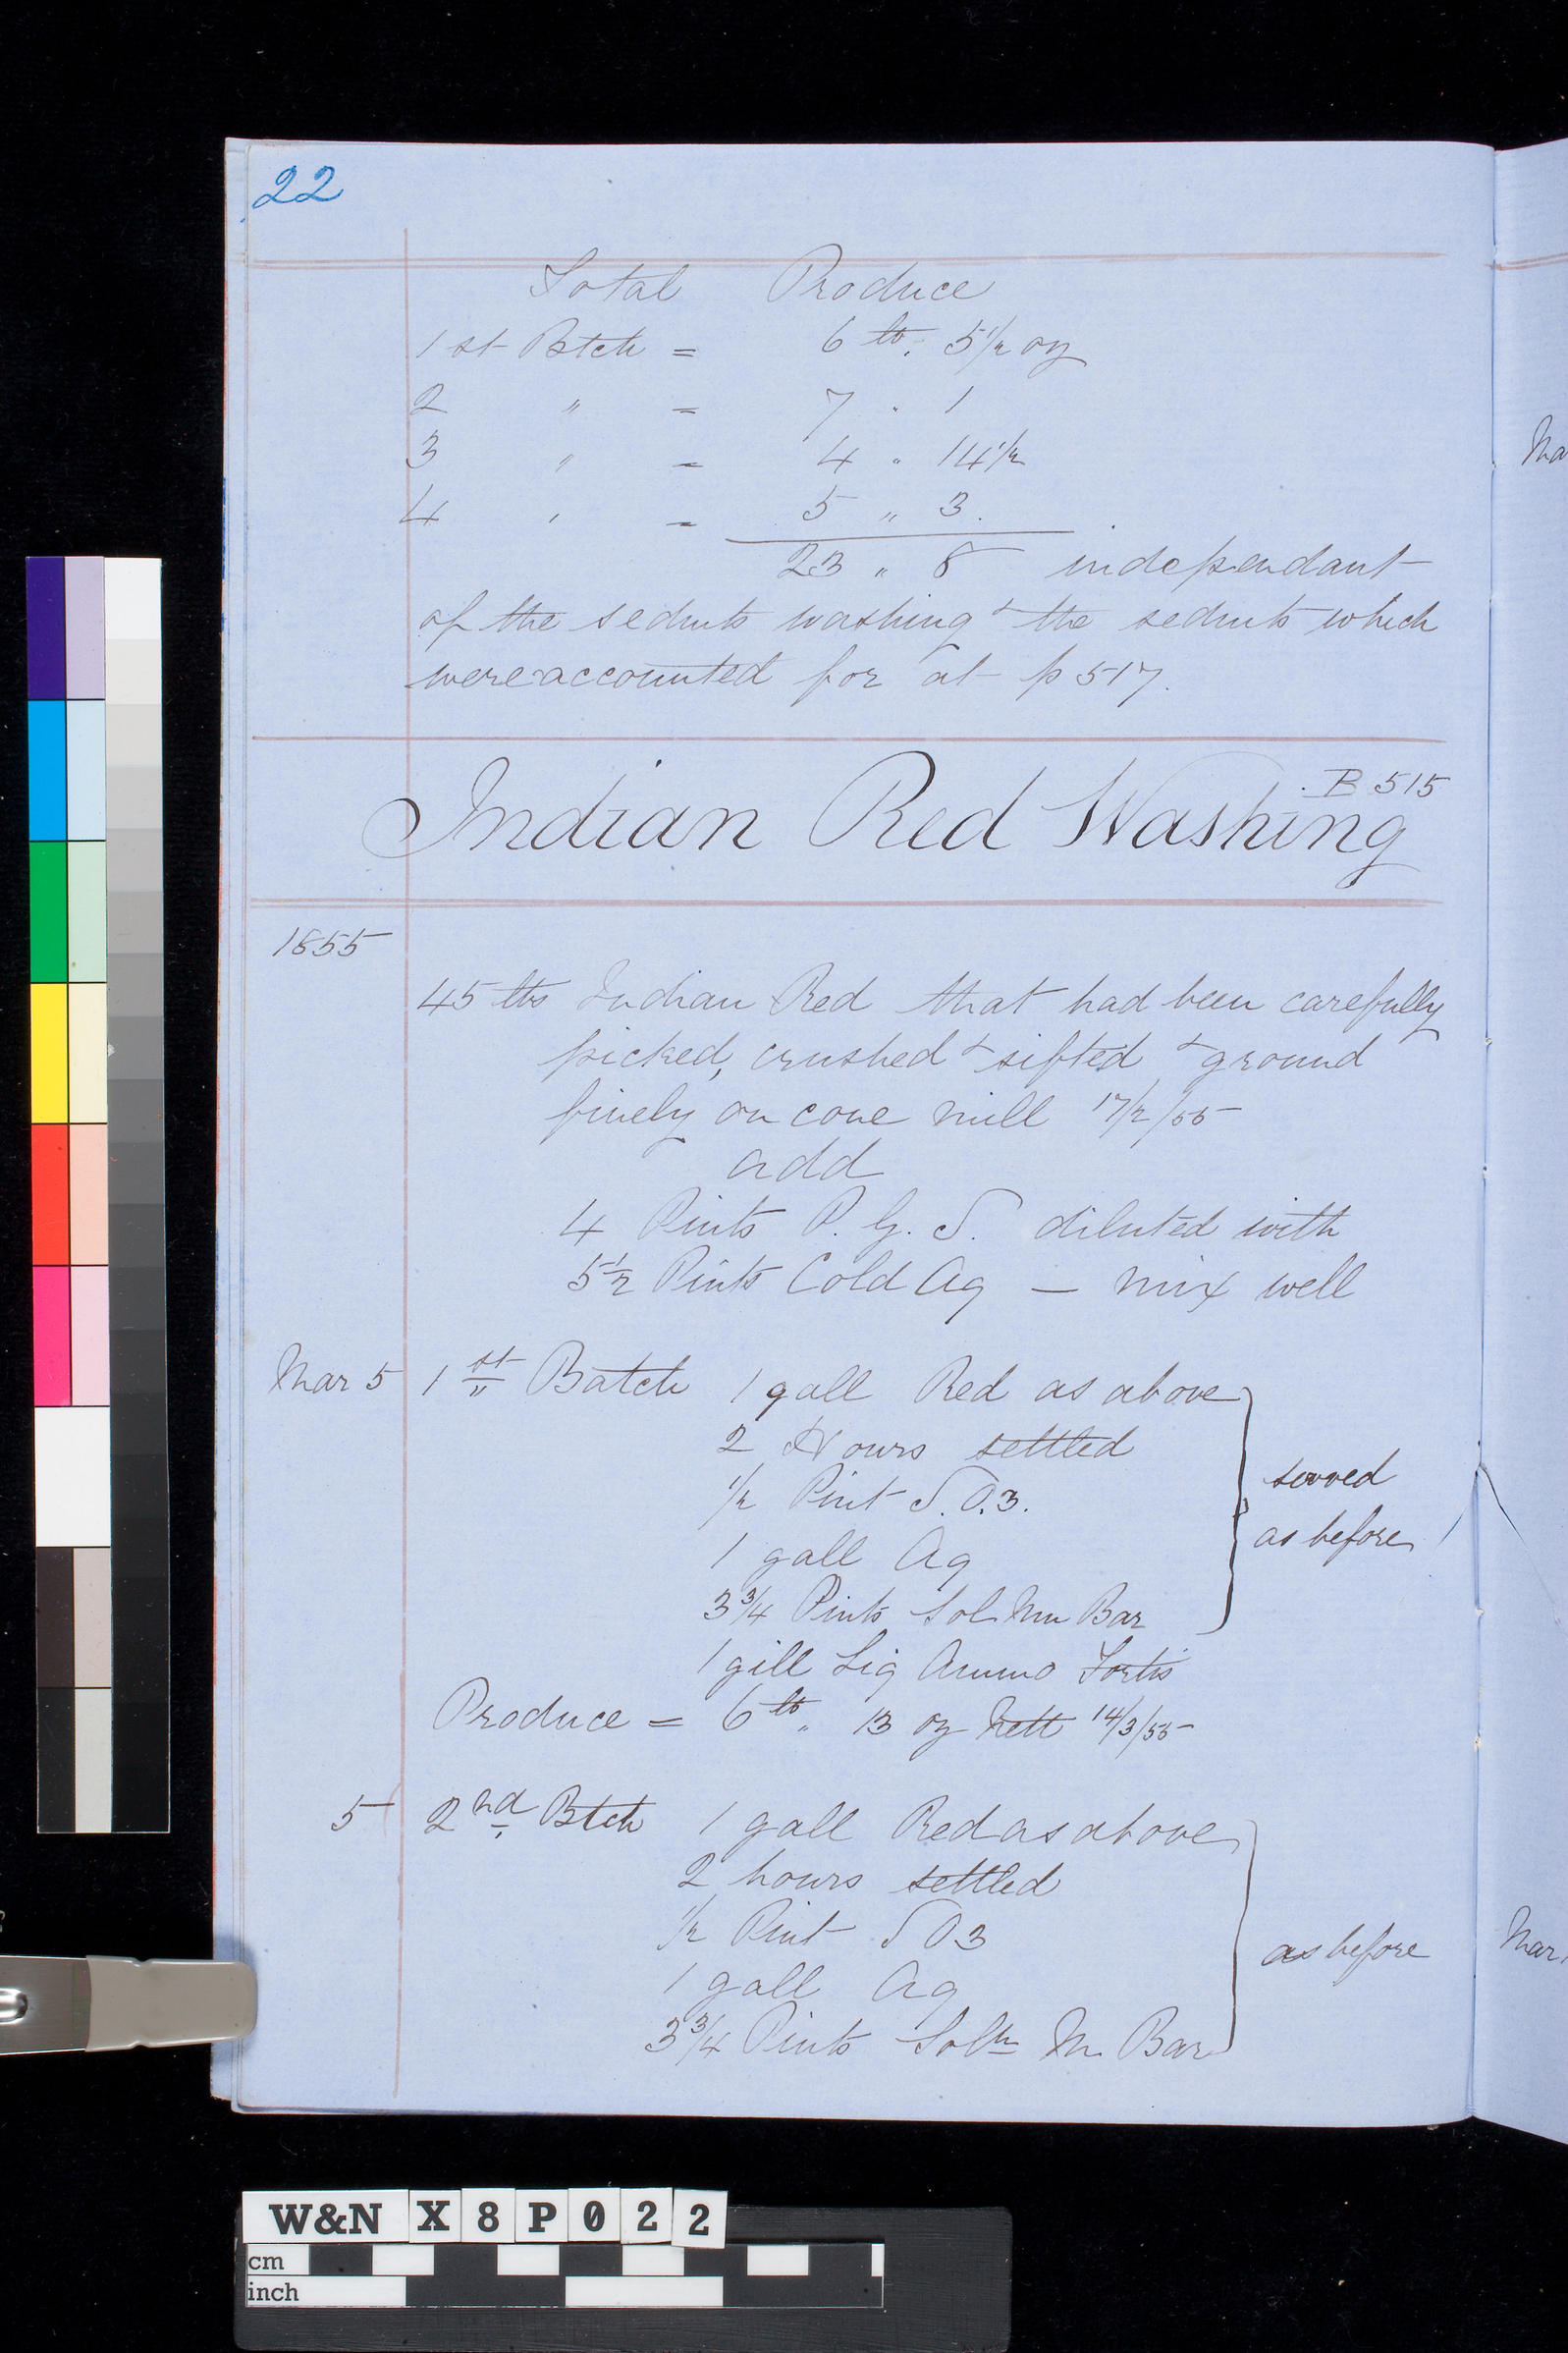 22
Total Produce
1st Btch = 6 lb. 5 1/2 oz
2 " = 7 " 1
3 " = 4 " 14 1/2
4 " = 5 " 3.
23 " 8 independant
of the sedmts washing & the sedmts which
were accounted for at p 517.
Indian Red Washing B 515
1855
45 lbs Indian Red that had been carefully
picked, crushed & sifted & ground
finely on cone mill 17/2/55
add
4 Pints P. G. S. diluted with
5 1/2 Pints Cold Aq — mix well
Mar 5 1st Batch 1 gall Red as above
2 Hours settled
1/2 Pint S.O.3. served
1 gall Aq as before
3 3/4 Pints Sol Mu Bar
1 gill Liq Ammo Fortis
Produce = 6 lb " 13 oz Nett 14/3/55
5 2nd Btch 1 gall Red as above
2 hours settled
1/2 Pint S O 3
1 gall Aq as before
3 3/4 Pints Soltn M Bar
Ma
Mar
W&N X8P022
cm
inch